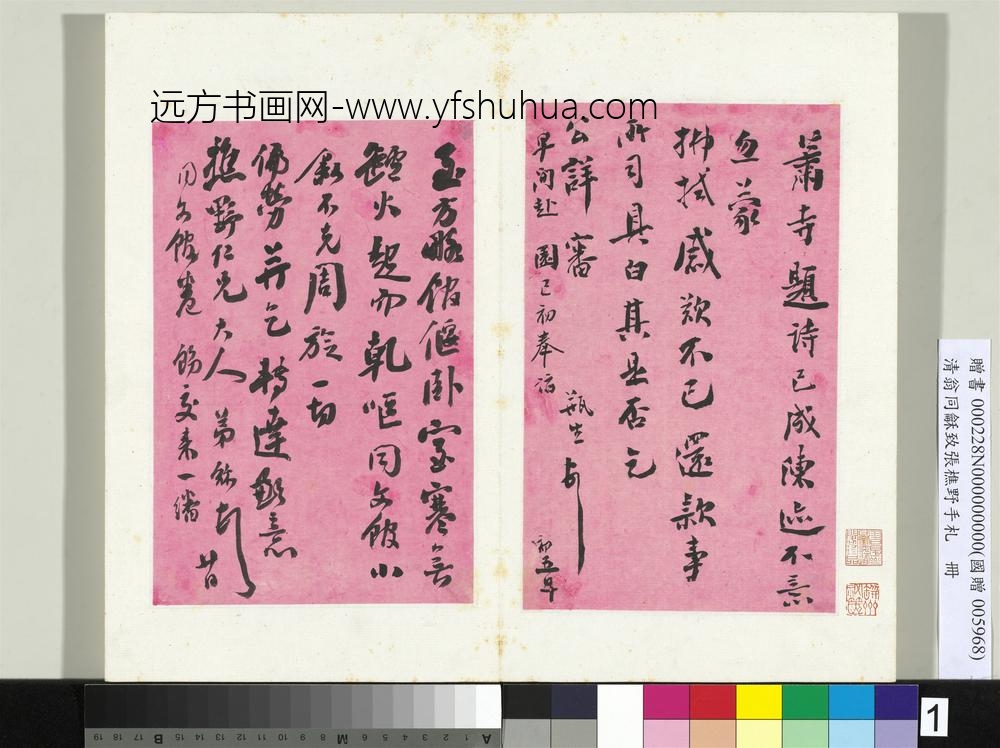 远方书画网-www.yfshuhua.com
蕭寺題詩已成陳迹不意
忽蒙
拂拭感欢不已還款事
所司具白其是否乞
公詳審
早间赴 園已初奉 瓶生
初五早
至方略館偃卧室寒無
爐火起而乾嘔同文館小
叙不克周旋一切
偏勞并乞轉達歉意
樵野仁兄大人 弟 廿日
同文館卷 飭交来一繙
贈書 000228N000000000(國贈 005968)
清翁同龢致張樵野手札 冊
1
A 1 2 3 4 5 6 M 8 9 10 11 12 13 14 15 B 17 18 19